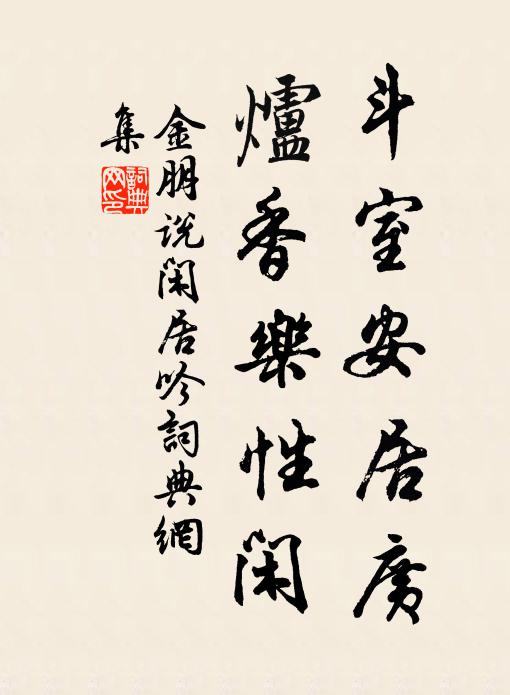 斗室安居廣
爐香樂性閑
金朋说閑居吟詞典網
集
詞典網印